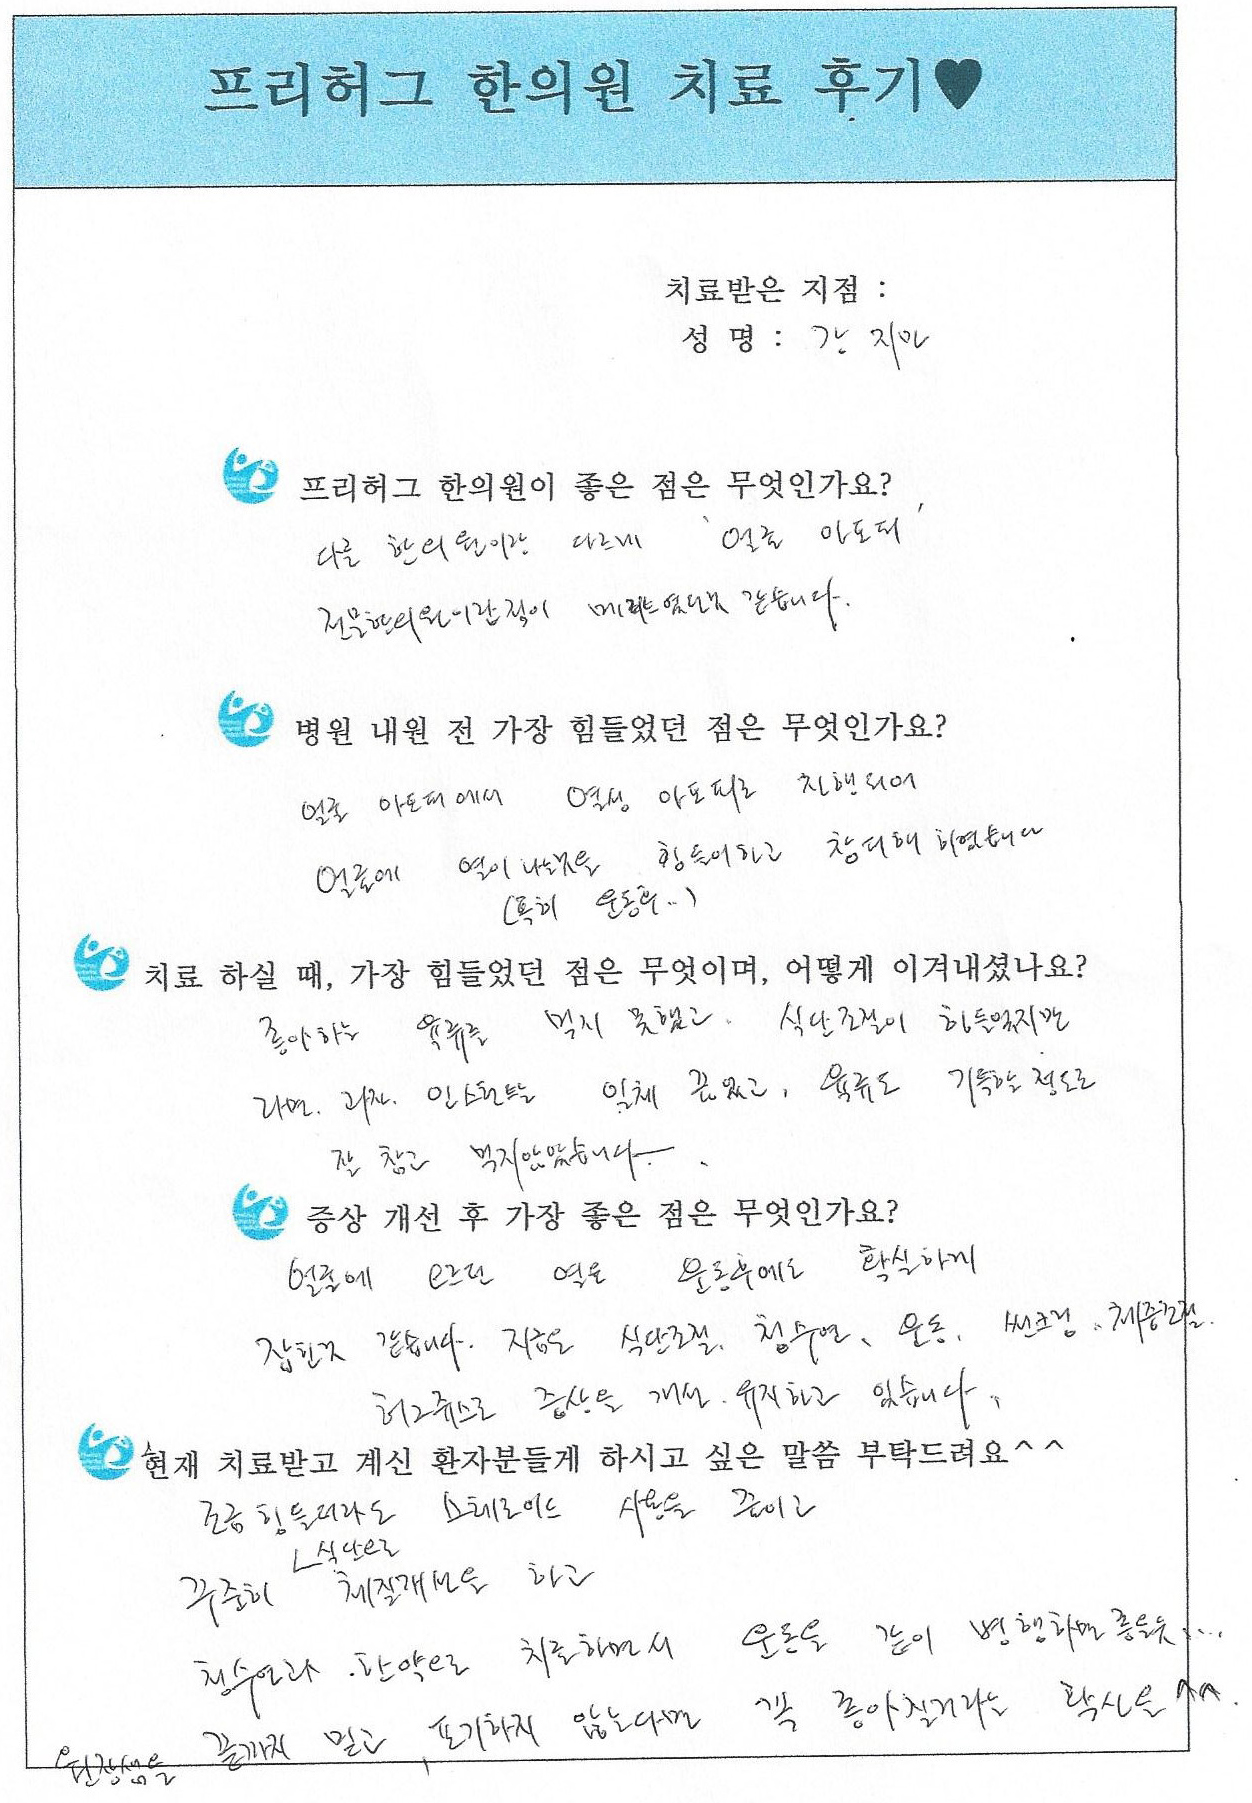 프리허그 한의원 치료 후기♥
치료받은 지점 :
성 명 : 강 지마
프리허그 한의원이 좋은 점은 무엇인가요?
다른 한의원이랑 다르게 '얼굴 아토피'
전문한의원이란점이 메리트였던것 같습니다.
병원 내원 전 가장 힘들었던 점은 무엇인가요?
얼굴 아토피에서 열성 아토피로 진행되어
얼굴에 열이 나는것을 힘들어하고 창피해 하였습니다
(특히 운동후..)
치료 하실 때, 가장 힘들었던 점은 무엇이며, 어떻게 이겨내셨나요?
좋아하는 육류를 먹지 못했고. 식단조절이 힘들었지만
라면. 과자. 인스턴트는 일체 끊었고, 육류도 기특할 정도로
잘 참고 먹지않았습니다.
증상 개선 후 가장 좋은 점은 무엇인가요?
얼굴에 오르던 열은 운동후에도 확실하게
잡힌것 같습니다. 지금은 식단조절, 청수연, 운동, 썬크림, 체중조절.
허그쥬스로 증상을 개선. 유지하고 있습니다.
현재 치료받고 계신 환자분들게 하시고 싶은 말씀 부탁드려요^^
조금 힘들더라도 스테로이드 사용을 줄이고
식단으로
꾸준히 체질개선을 하고
청수연과 한약으로 치료하면서 운동을 같이 병행하면 좋을듯....
원장쌤을 끝까지 믿고, 포기하지 않는다면 꼭 좋아질거라는 확신을^^.